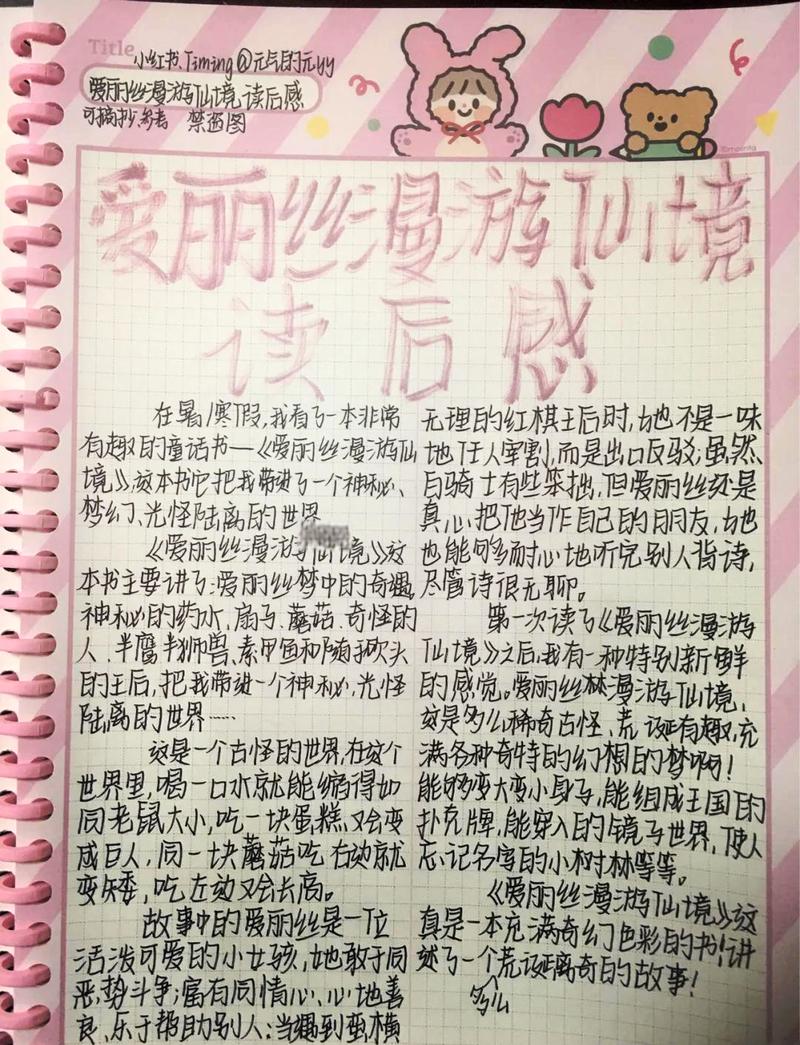 Title
小红书.Timing@元气的元yy
爱丽丝漫游仙境读后感
可摘抄、参考 禁盗图
爱丽丝漫游仙境
读后感
在暑/寒假,我看了一本非常
有趣的童话书—《爱丽丝漫游仙
境》,这本书它把我带进了一个神秘、
梦幻、光怪陆离的世界
《爱丽丝漫游仙境》这
本书主要讲了:爱丽丝梦中的奇遇,
神秘的药水、扇子、蘑菇、奇怪的
人、半鹰半狮兽、素甲鱼和随手砍头
的王后,把我带进一个神秘、光怪
陆离的世界……
这是一个古怪的世界,在这个
世界里,喝一口水就能缩得如
同老鼠大小,吃一块蛋糕又会变
成巨人,同一块蘑菇吃右边就
变矮,吃左边又会长高。
故事中的爱丽丝是一位
活泼可爱的小女孩,她敢于同
恶势斗争;富有同情心、心地善
良、乐于帮助别人:当遇到蛮横
无理的红棋王后时,她也不是一味
地任人宰割,而是出口反驳;虽然
白骑士有些笨拙,但爱丽丝还是
真心把他当作自己的朋友,她
也能够耐心地听完别人背诗,
尽管诗很无聊。
第一次读了《爱丽丝漫游
仙境》之后,我有一种特别新鲜
的感觉。爱丽丝梦漫游仙境,
这是多么稀奇古怪、荒诞有趣,充
满各种奇特的幻想的梦啊!
能够变大变小身子,能组成王国的
扑克牌,能穿入的镜子世界,使人
忘记名字的小树林等等。
《爱丽丝漫游仙境》这
真是一本充满奇幻色彩的书!讲
述了一个荒诞离奇的故事!
多么